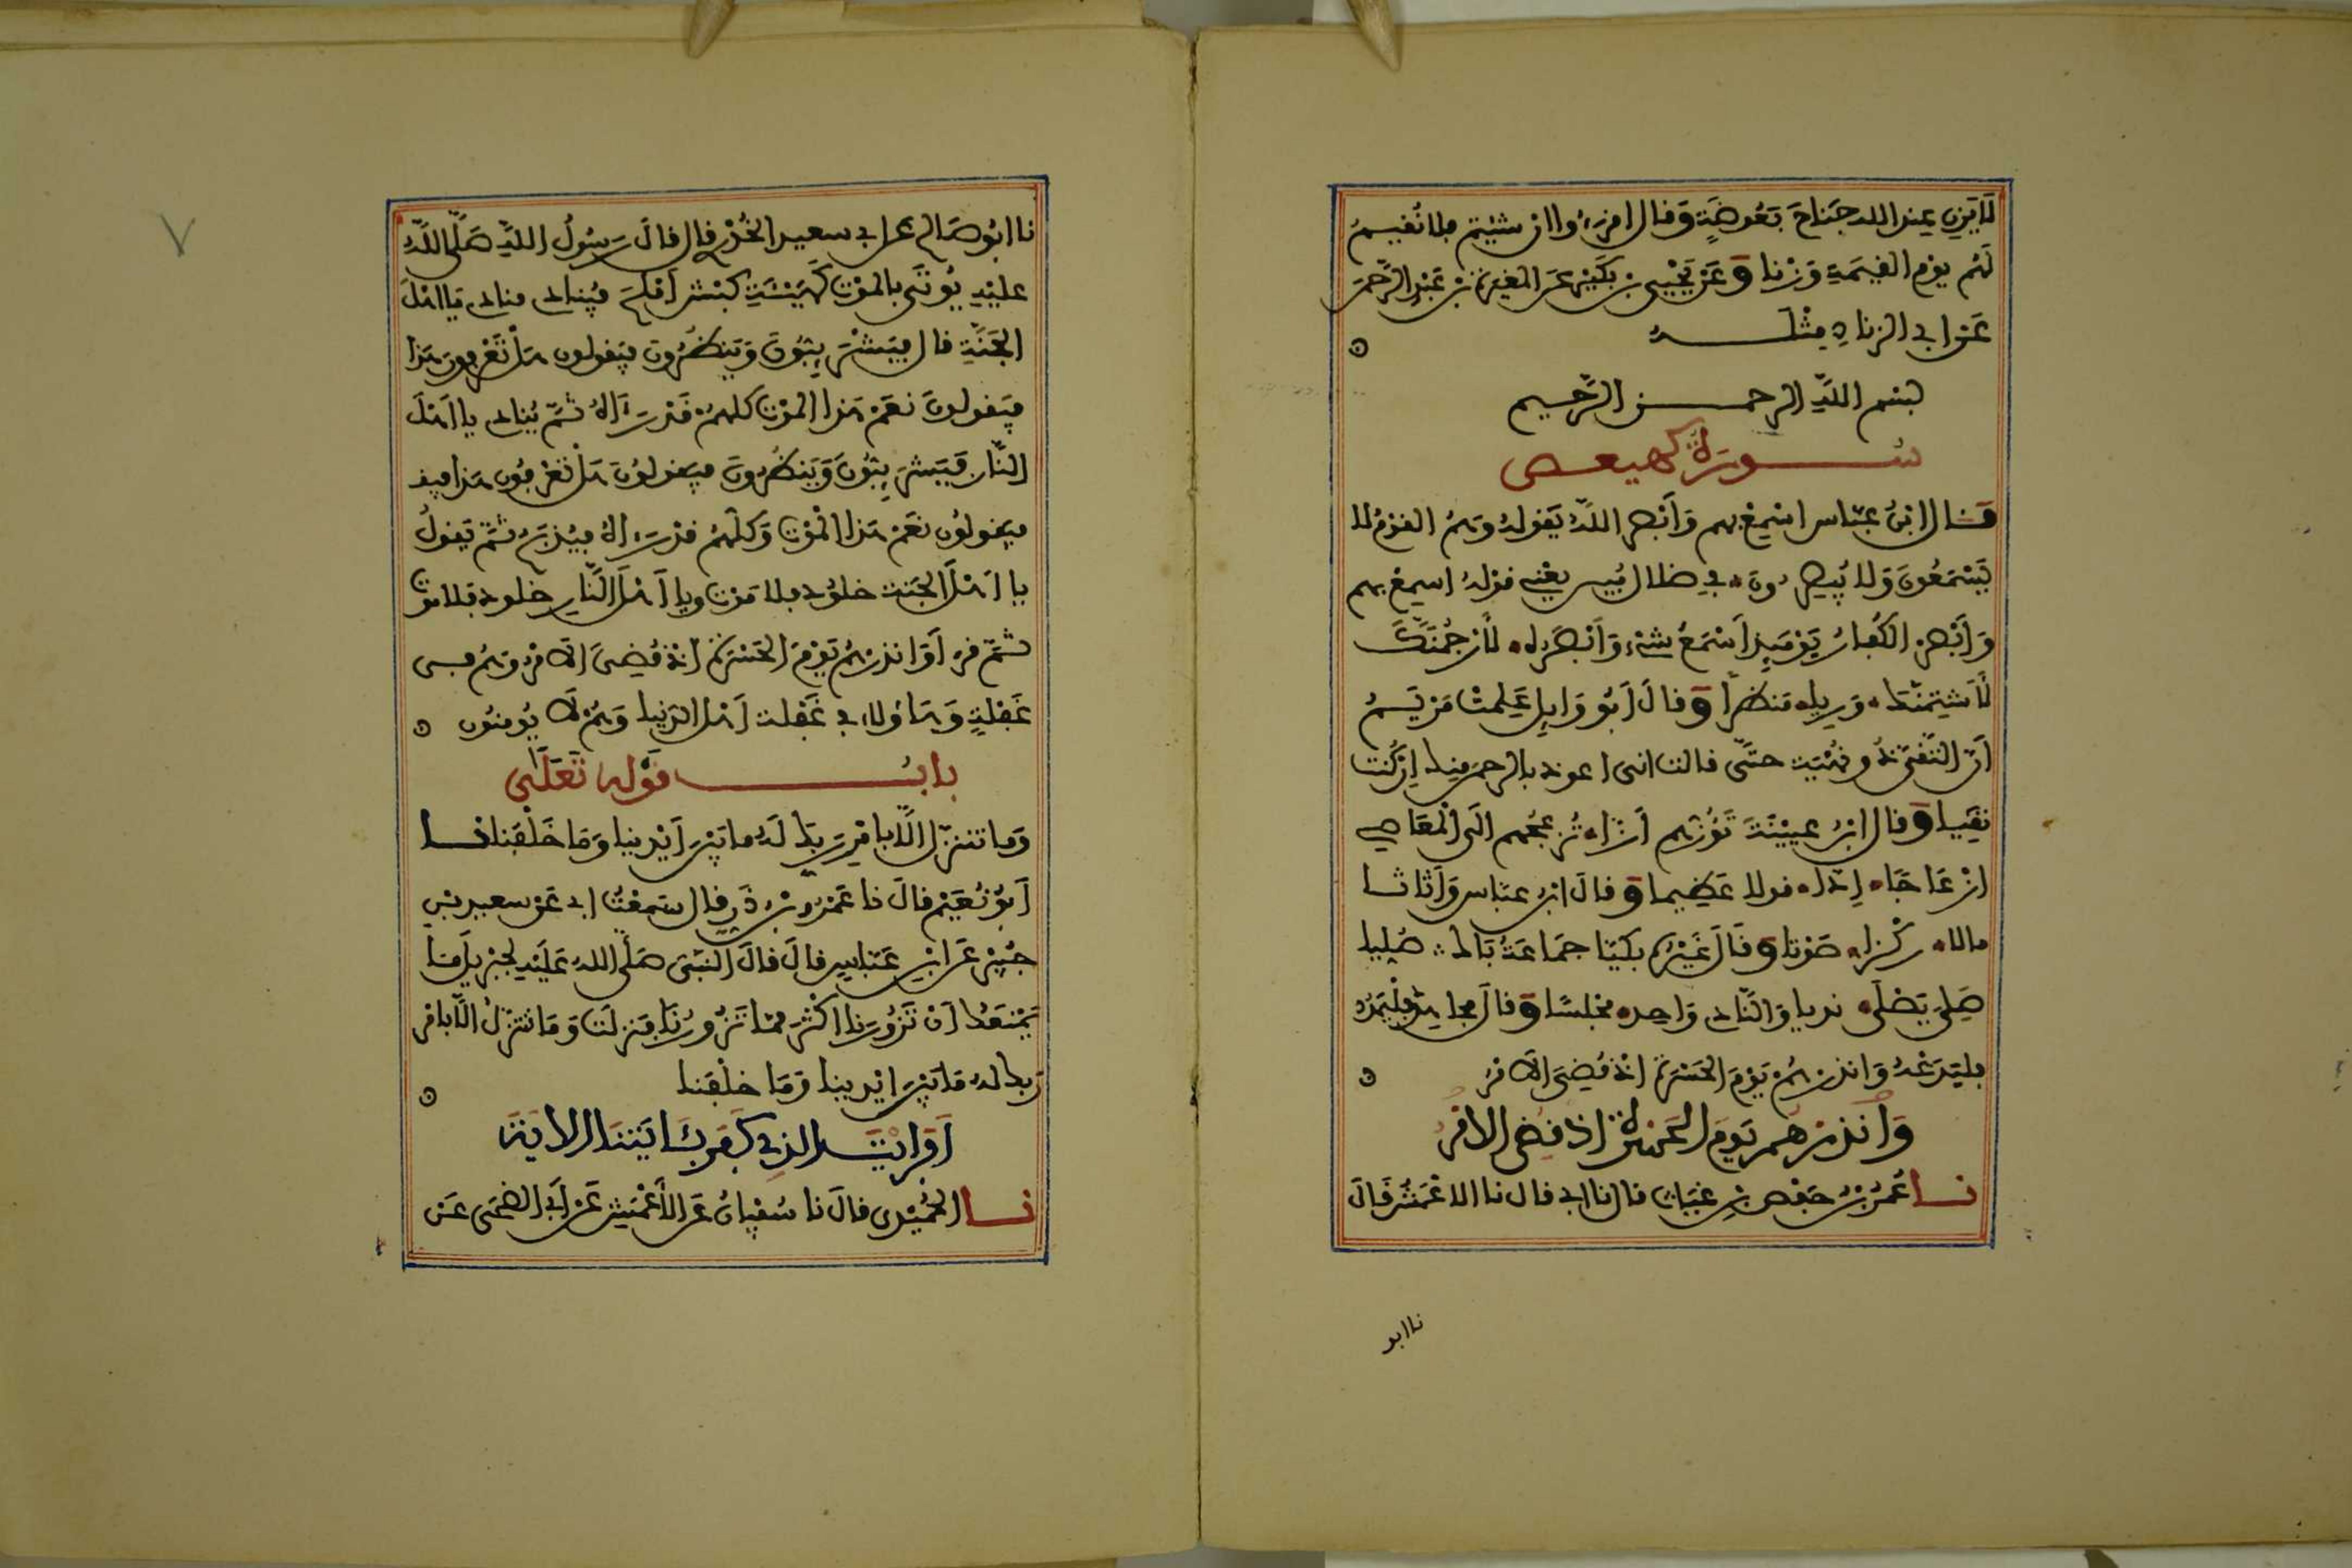 لا يزن عند الله جناح بعوضة وقال اقرءوا ان شئتم فلا نُقيم
لهم يوم القيمة وزنا وعن يحيى بن بكير عن المغيرة بن عبد الرحمن
عن ابي الزناد مثله
بسم الله الرحمن الرحيم
سورة كهيعص
قال ابن عباس اسمع بهم وأبصر الله يقوله وهم القوم لا
يسمعون ولا يبصرون في ضلال مبين يعني قوله اسمع بهم
وأبصر الكفار يومئذ أسمع شيء وأبصره لأرجمنك
لأشتمنك ورييا منظرا وقال أبو وايل علمت مريم
أن التقي ذو نهية حتى قالت انى اعوذ بالرحمن منك ان كنت
تقيا وقال ابن عيينة تؤزهم أزا تزعجهم الى المعاصي
ازعاجا إدّا قولا عظيما وقال ابن عباس وأثاثا
مالا ركزا صوتا وقال غيره بكيا جماعة باك صليا
صلي يصلى نديا والنادي واحد مجلسا وقال مجاهد فليمدد
فليدعه وانذرهم يوم الحسرة اذ قضي الامر
وانذرهم يوم الحسرة اذ قضي الامر
نا عمر بن حفص بن غياث قال نا ابي قال نا الاعمش قال
نا ابو
نا ابو صالح عن ابي سعيد الخدري قال قال رسول الله صلى الله
عليه يوتى بالموت كهيئة كبش أملح فينادي مناد يا اهل
الجنة قال فيشرئبون وينظرون فيقولون هل تعرفون هذا
فيقولون نعم هذا الموت كلهم قد رءاه ثم ينادي يا اهل
النار فيشرئبون وينظرون فيقولون هل تعرفون هذا فيقو
فيقولون نعم هذا الموت وكلهم قد رءاه فيذبح ثم يقول
يا اهل الجنة خلود فلا موت ويا اهل النار خلود فلا موت
ثم قرأ وانذرهم يوم الحسرة اذ قضي الامر وهم في
غفلة وهاؤلاء في غفلة اهل الدنيا وهم لا يومنون
باب قوله تعلى
وما نتنزل الا بامر ربك له ما بين أيدينا وما خلفنا نا
أبو نعيم قال نا عمر بن ذر قال سمعت ابي عن سعيد بن
جبير عن ابن عباس قال قال النبي صلى الله عليه لجبريل ما
يمنعك أن تزورنا اكثر مما تزورنا فنزلت وما نتنزل الا بامر
ربك له ما بين ايدينا وما خلفنا
أفرايت الذي كفر بئايتنا الاية
نا الحميدي قال نا سفيان عن الأعمش عن أبي الضحى عن